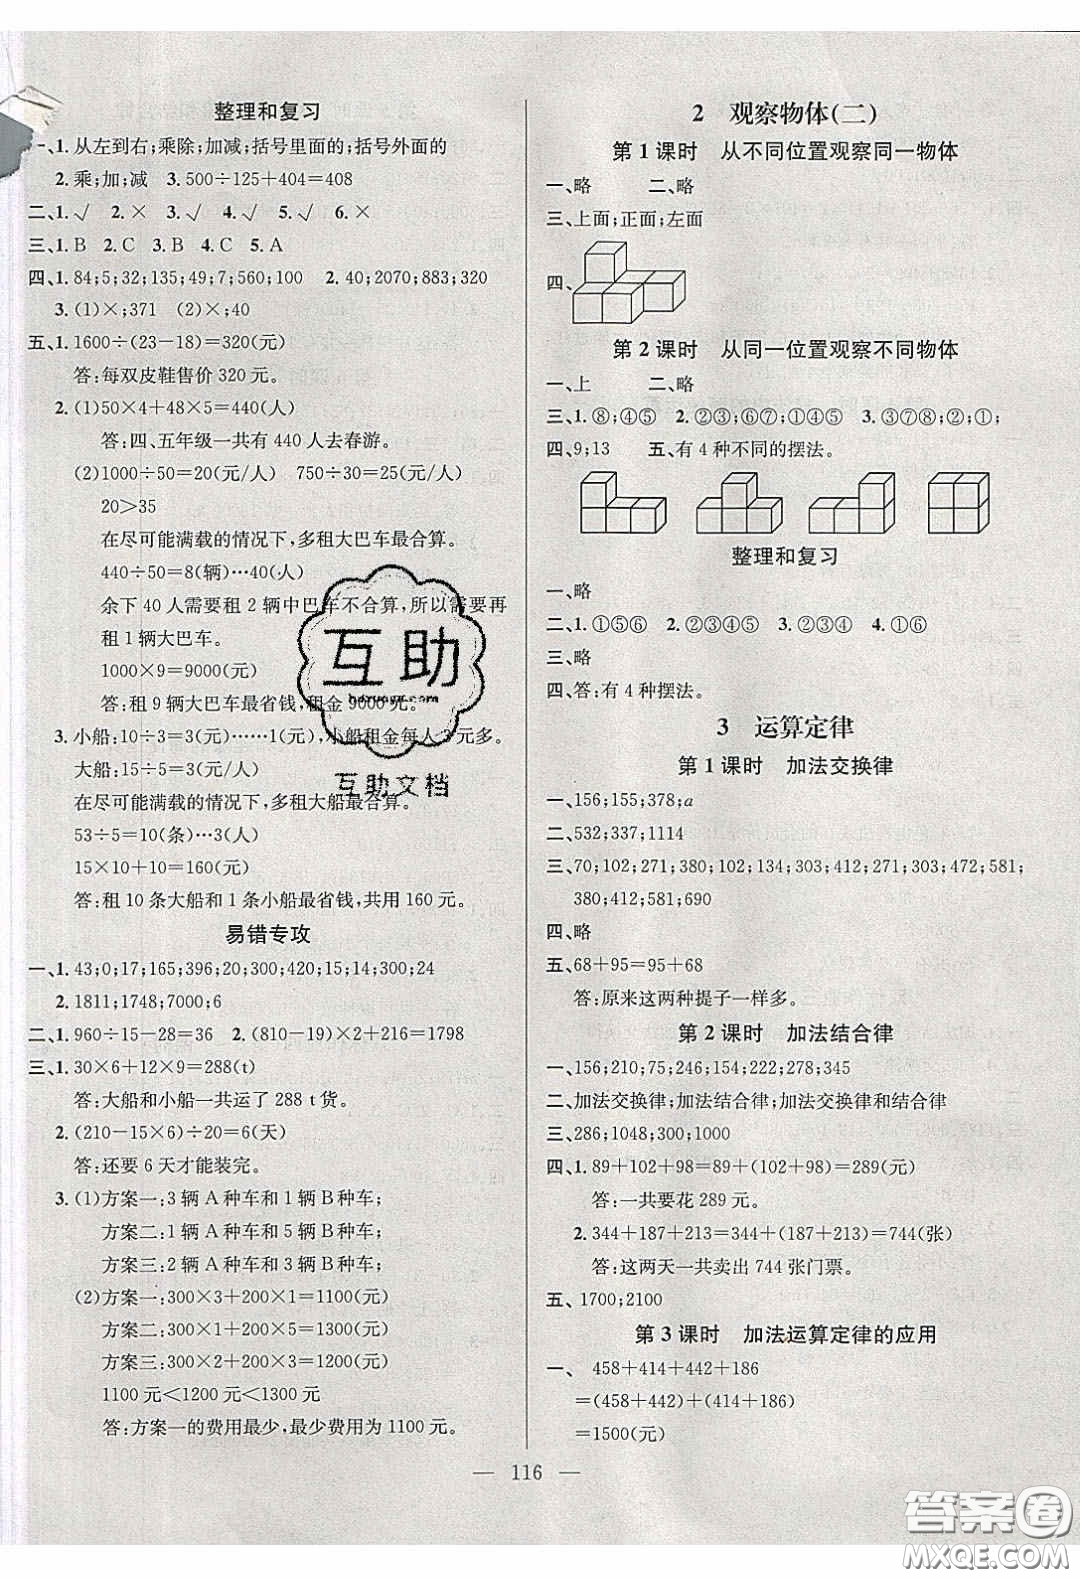 整理和复习
一、1. 从左到右;乘除;加减;括号里面的;括号外面的
2. 乘;加;减 3. 500÷125+404=408
二、1. √ 2. × 3. √ 4. √ 5. √ 6. ×
三、1. B 2. C 3. B 4. C 5. A
四、1. 84;5;32;135;49;7;560;100 2. 40;2070;883;320
3. (1)×;371 (2)×;40
五、1. 1600÷(23-18)=320(元)
答:每双皮鞋售价 320 元。
2. (1)50×4+48×5=440(人)
答:四、五年级一共有 440 人去春游。
(2)1000÷50=20(元/人) 750÷30=25(元/人)
20>35
在尽可能满载的情况下,多租大巴车最合算。
440÷50=8(辆)…40(人)
余下 40 人需要租 2 辆中巴车不合算,所以需要再
租 1 辆大巴车。
1000×9=9000(元)
答:租 9 辆大巴车最省钱,租金 9000 元。
3. 小船:10÷3=3(元)……1(元),小船租金每人 3 元多。
大船:15÷5=3(元)
在尽可能满载的情况下,多租大船最合算。
53÷5=10(条)…3(人)
15×10+10=160(元)
答:租 10 条大船和 1 条小船最省钱,共用 160 元。
易错专攻
一、1. 43;0;17;165;396;20;300;420;15;14;300;24
2. 1811;1748;7000;6
二、1. 960÷15-28=36 2. (810-19)×2+216=1798
三、1. 30×6+12×9=288(t)
答:大船和小船一共运了 288 t货。
2. (210-15×6)÷20=6(天)
答:还要 6 天才能装完。
3. (1)方案一:3 辆 A 种车和 1 辆 B 种车;
方案二:1 辆 A 种车和 5 辆 B 种车;
方案三:2 辆 A 种车和 3 辆 B 种车;
(2)方案一:300×3+200×1=1100(元)
方案二:300×1+200×5=1300(元)
方案三:300×2+200×3=1200(元)
1100 元<1200 元<1300 元
答:方案一的费用最少,最少费用为 1100 元。
2 观察物体(二)
第 1 课时 从不同位置观察同一物体
一、略 二、略
三、上面;正面;左面
四、
第 2 课时 从同一位置观察不同物体
一、上 二、略
三、1. ⑧;④⑤ 2. ②③;⑥⑦;①④⑤ 3. ③⑦⑧;②;①;
四、9;13 五、有 4 种不同的摆法。
整理和复习
一、略
二、1. ①⑤⑥ 2. ②③④⑤ 3. ②③④⑤ 4. ①⑥
三、略
四、答:有 4 种摆法。
3 运算定律
第 1 课时 加法交换律
一、156;155;378;a
二、532;337;1114
三、70;102;271;380;102;134;303;412;271;303;472;581;
380;412;581;690
四、略
五、68+95=95+68
答:原来这两种提子一样多。
第 2 课时 加法结合律
一、156;210;75;246;154;378;222;578;345
二、加法交换律;加法结合律;加法交换律和结合律
三、286;1048;300;1000
四、1. 89+102+98=89+(102+98)=289(元)
答:一共要花 289 元。
2. 344+187+213=344+(187+213)=744(张)
答:这两天一共卖出 744 张门票。
五、1700;2100
第 3 课时 加法运算定律的应用
一、 458+414+442+186
=(458+442)+(414+186)
=1500(元)
— 116 —
互助
互助文档
答案圈
MXQE.COM